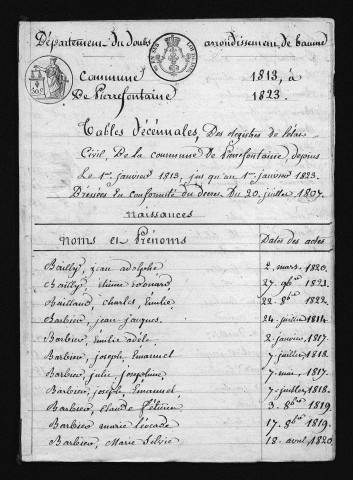 Département du doubs arrondissement de baume
Commune 1813, à
De Pierrefontaine 1823.
Tables Décennales, Des Registres de l'état
Civil, De la commune De Pierrefontaine, depuis
Le 1er janvier 1813, jusqu'au 1er janvier 1823.
Dressées En conformité du décret Du 20 juillet 1807.
naissances
Noms et Prénoms Dates des actes
Bailly, jean adolphe 2. mars. 1820.
Bailly, Edouard 27. 9bre 1821.
Baillaud, Charles, Emilie 22. 8bre 1822.
Barbier, jean jacques. 24. juillet 1814.
Barbier, Emilie adèle. 2. janvier. 1817.
Barbier, joseph, Emanuel 7. juillet. 1818.
Barbier, julie josephine; 7. mai, 1817.
Barbier, joseph, Emanuel, 7. juillet, 1818.
Barbier, Claude Etienne 3. 8bre 1819
Barbier marie Léocade 17. 8bre 1819.
Barbier, Marie Silvie 18. avril, 1820